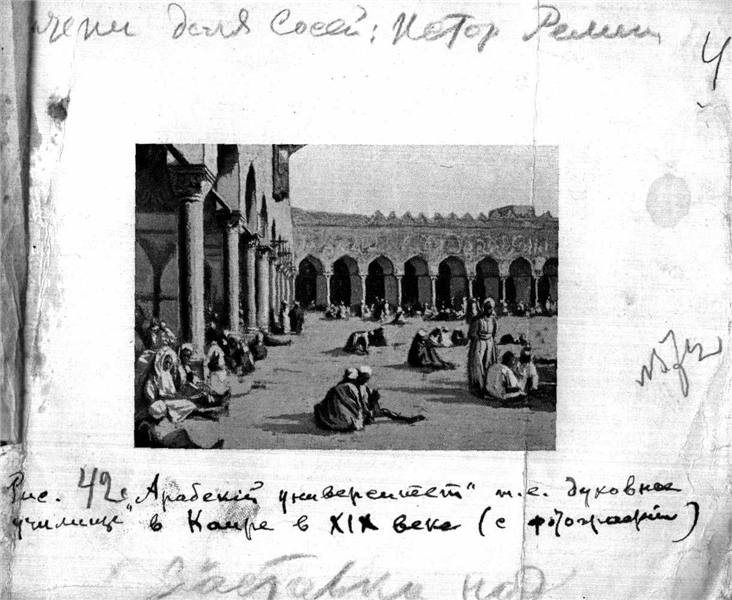 доля Сосей: Истор Религ
4
Рис. 42. "Арабскій университет" т.е. духовное
училище" в Каире в XIX веке (с фотографіи)
Заставка над